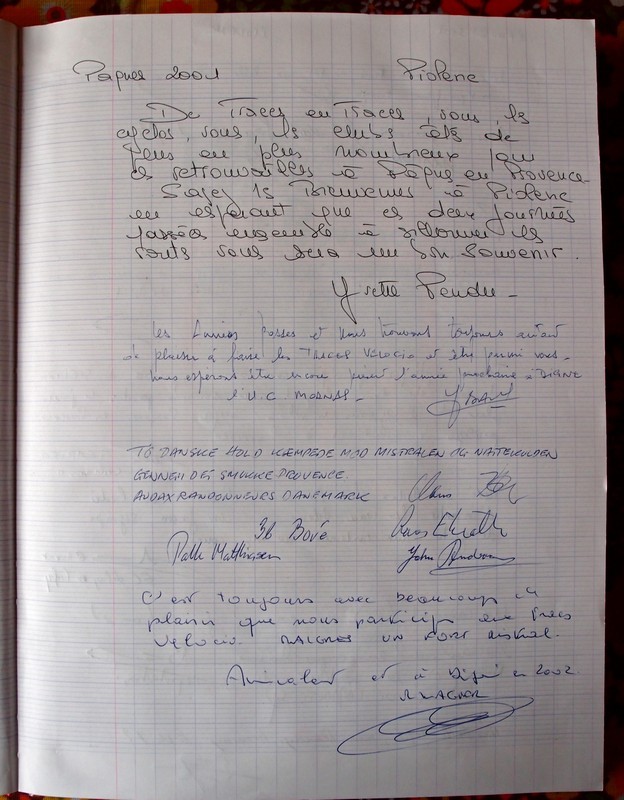 Pâques 2001 Piolenc
De Traces en Traces, vous, les
cyclos, vous, les clubs êtes de
plus en plus nombreux pour
ces retrouvailles à Pâques en Provence
Soyez les Bienvenus à Piolenc
en espérant que ces deux journées
passées ensemble à sillonner les
routes vous sera un bon souvenir.
Yvette
les Années passes et nous trouvons toujours autant
de plaisir à faire les TRACES VELOCIO et être parmi vous.
nous esperons être encore pour l'année prochaine.
l'U.C.
TO DANSKE HOLD KÆMPEDE MOD MISTRALEN OG NATTEKULDEN
GENNEM DET SMUKKE PROVENCE
AUDAX RANDONNEURS DANEMARK Claus
Ib Bové
Palle Matthiasen John
C'est toujours avec beaucoup de
plaisir que nous participons aux Traces
Velocio. MALGRES UN FORT MISTRAL.
Amicalement et à en 2002
WAGNER